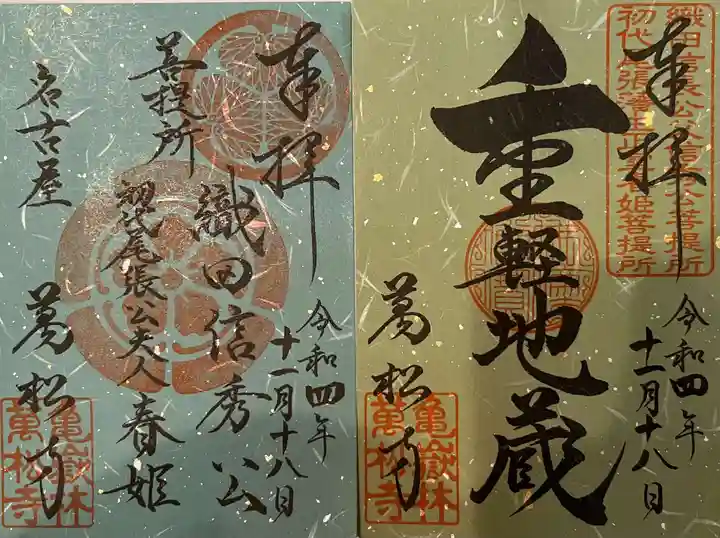 奉拝
令和四年
十一月十八日
織田信秀公
菩提所
初代尾張公夫人春姫
名古屋
萬松寺
亀嶽林
萬松寺
織田信長公父信秀公菩提所
初代尾張藩主
姫菩提所
奉拝
令和四年
十一月十八日
重軽地蔵
萬松寺
亀嶽林
萬松寺